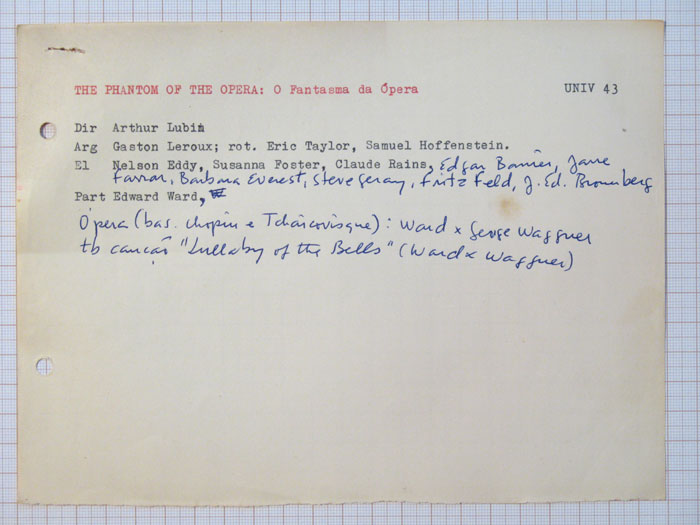 THE PHANTOM OF THE OPERA: O Fantasma da Ópera UNIV 43
Dir Arthur Lubin
Arg Gaston Leroux; rot. Eric Taylor, Samuel Hoffenstein.
El Nelson Eddy, Susanna Foster, Claude Rains, Edgar Barrier, Jane
Farrar, Barbara Everest, Steve Geray, Fritz Feld, J. Ed. Bromberg
Part Edward Ward,
Ópera (bas. Chopin e Tchaicovisque): Ward x George Waggner
tb canção "Lullaby of the Bells" (Ward x Waggner)